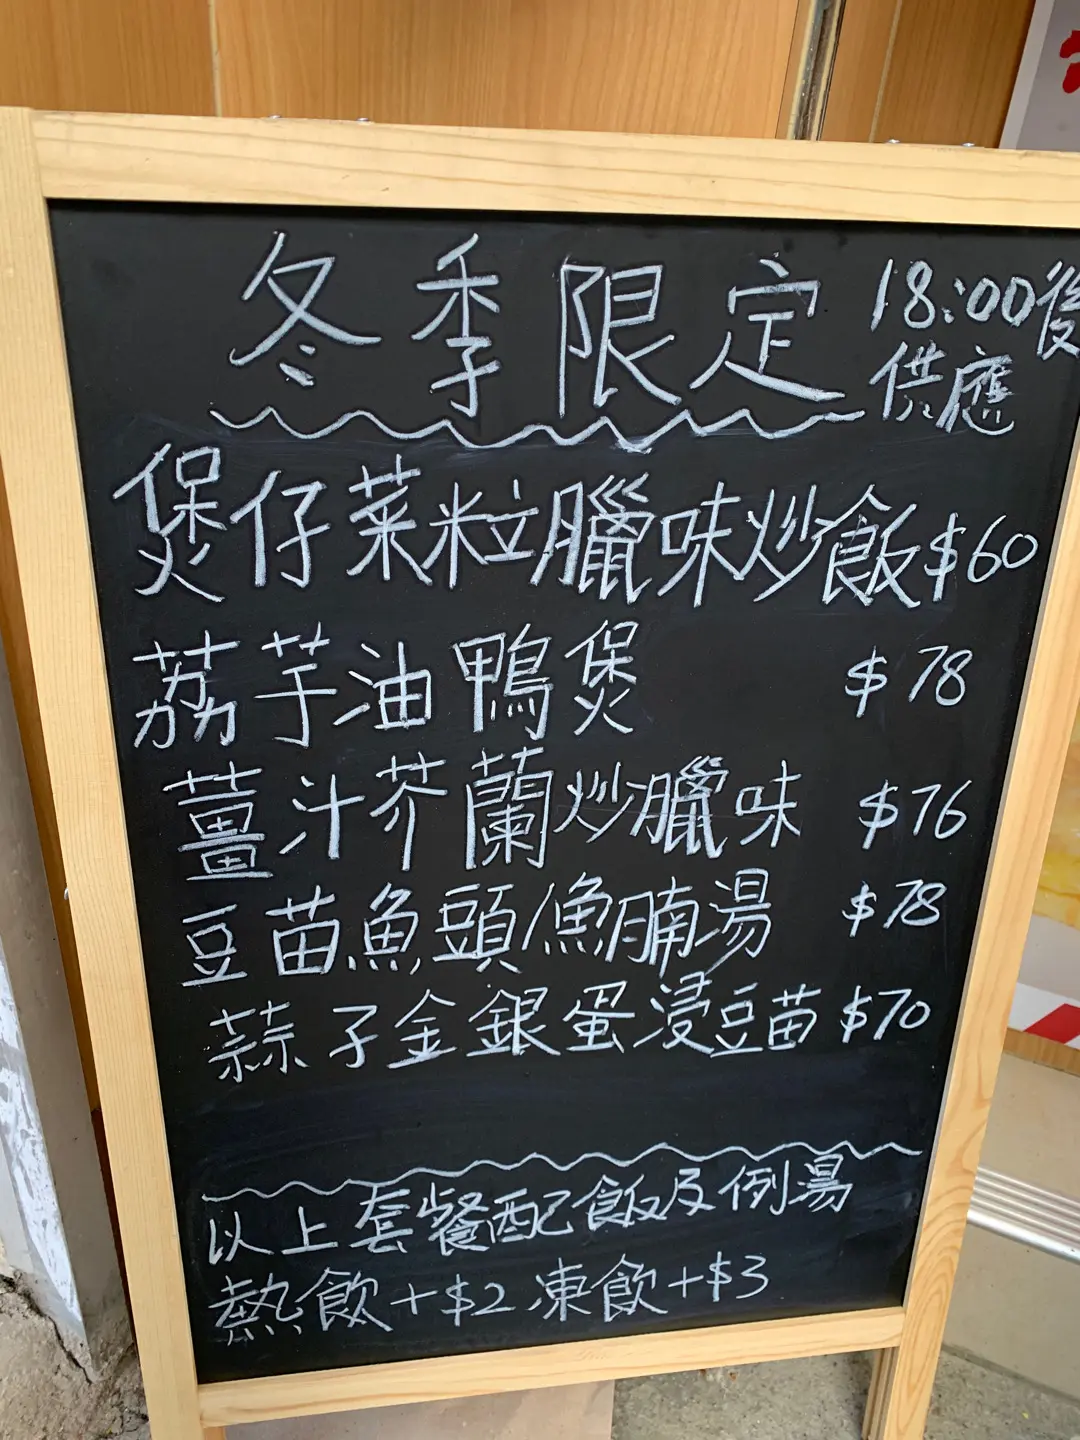 冬季限定 18:00後
供應
煲仔菜粒臘味炒飯 $60
荔芋油鴨煲 $78
薑汁芥蘭炒臘味 $76
豆苗魚頭/魚腩湯 $78
蒜子金銀蛋浸豆苗 $70
以上套餐配飯及例湯
熱飲+$2 凍飲+$3